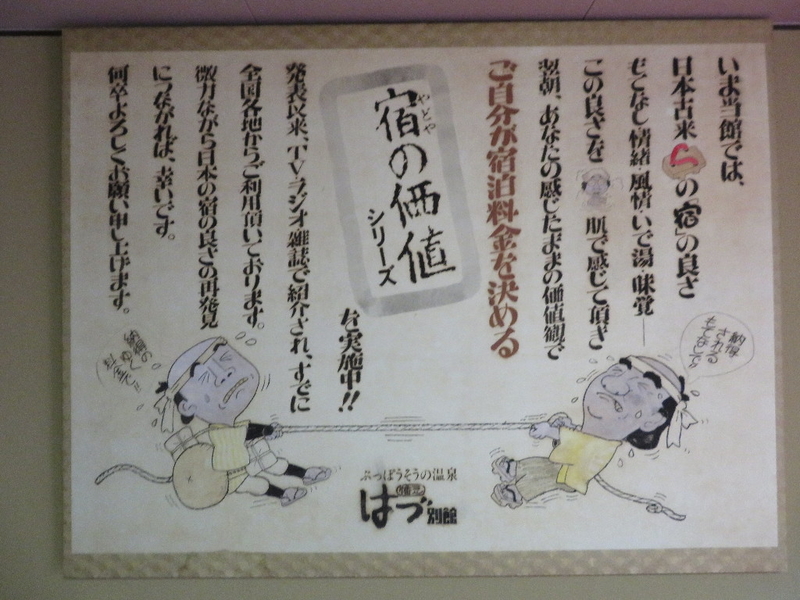 いま当館では、
日本古来の「宿」の良さ
もてなし・情緒・風情・いで湯・味覚―
この良さを肌で感じて頂き
翌朝、あなたの感じたままの価値観で
ご自分が宿泊料金を決める
やどや
宿の価値
シリーズ
を実施中!!
発表以来、TVラジオ雑誌で紹介され、すでに
全国各地からご利用頂いております。
微力ながら日本の宿の良さの再発見
につながれば、幸いです。
何卒よろしくお願い申し上げます。
納得
される
もてなしで!!
納得の
ゆく
料金を!!
ぶっぽうそうの温泉
はづ別館